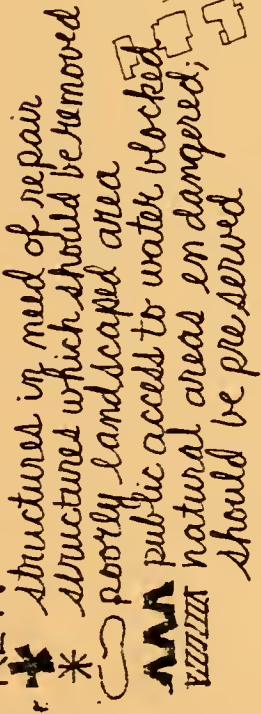 structures in need of repair
structures which should be removed
poorly landscaped area
public access to water blocked
natural areas endangered;
should be preserved